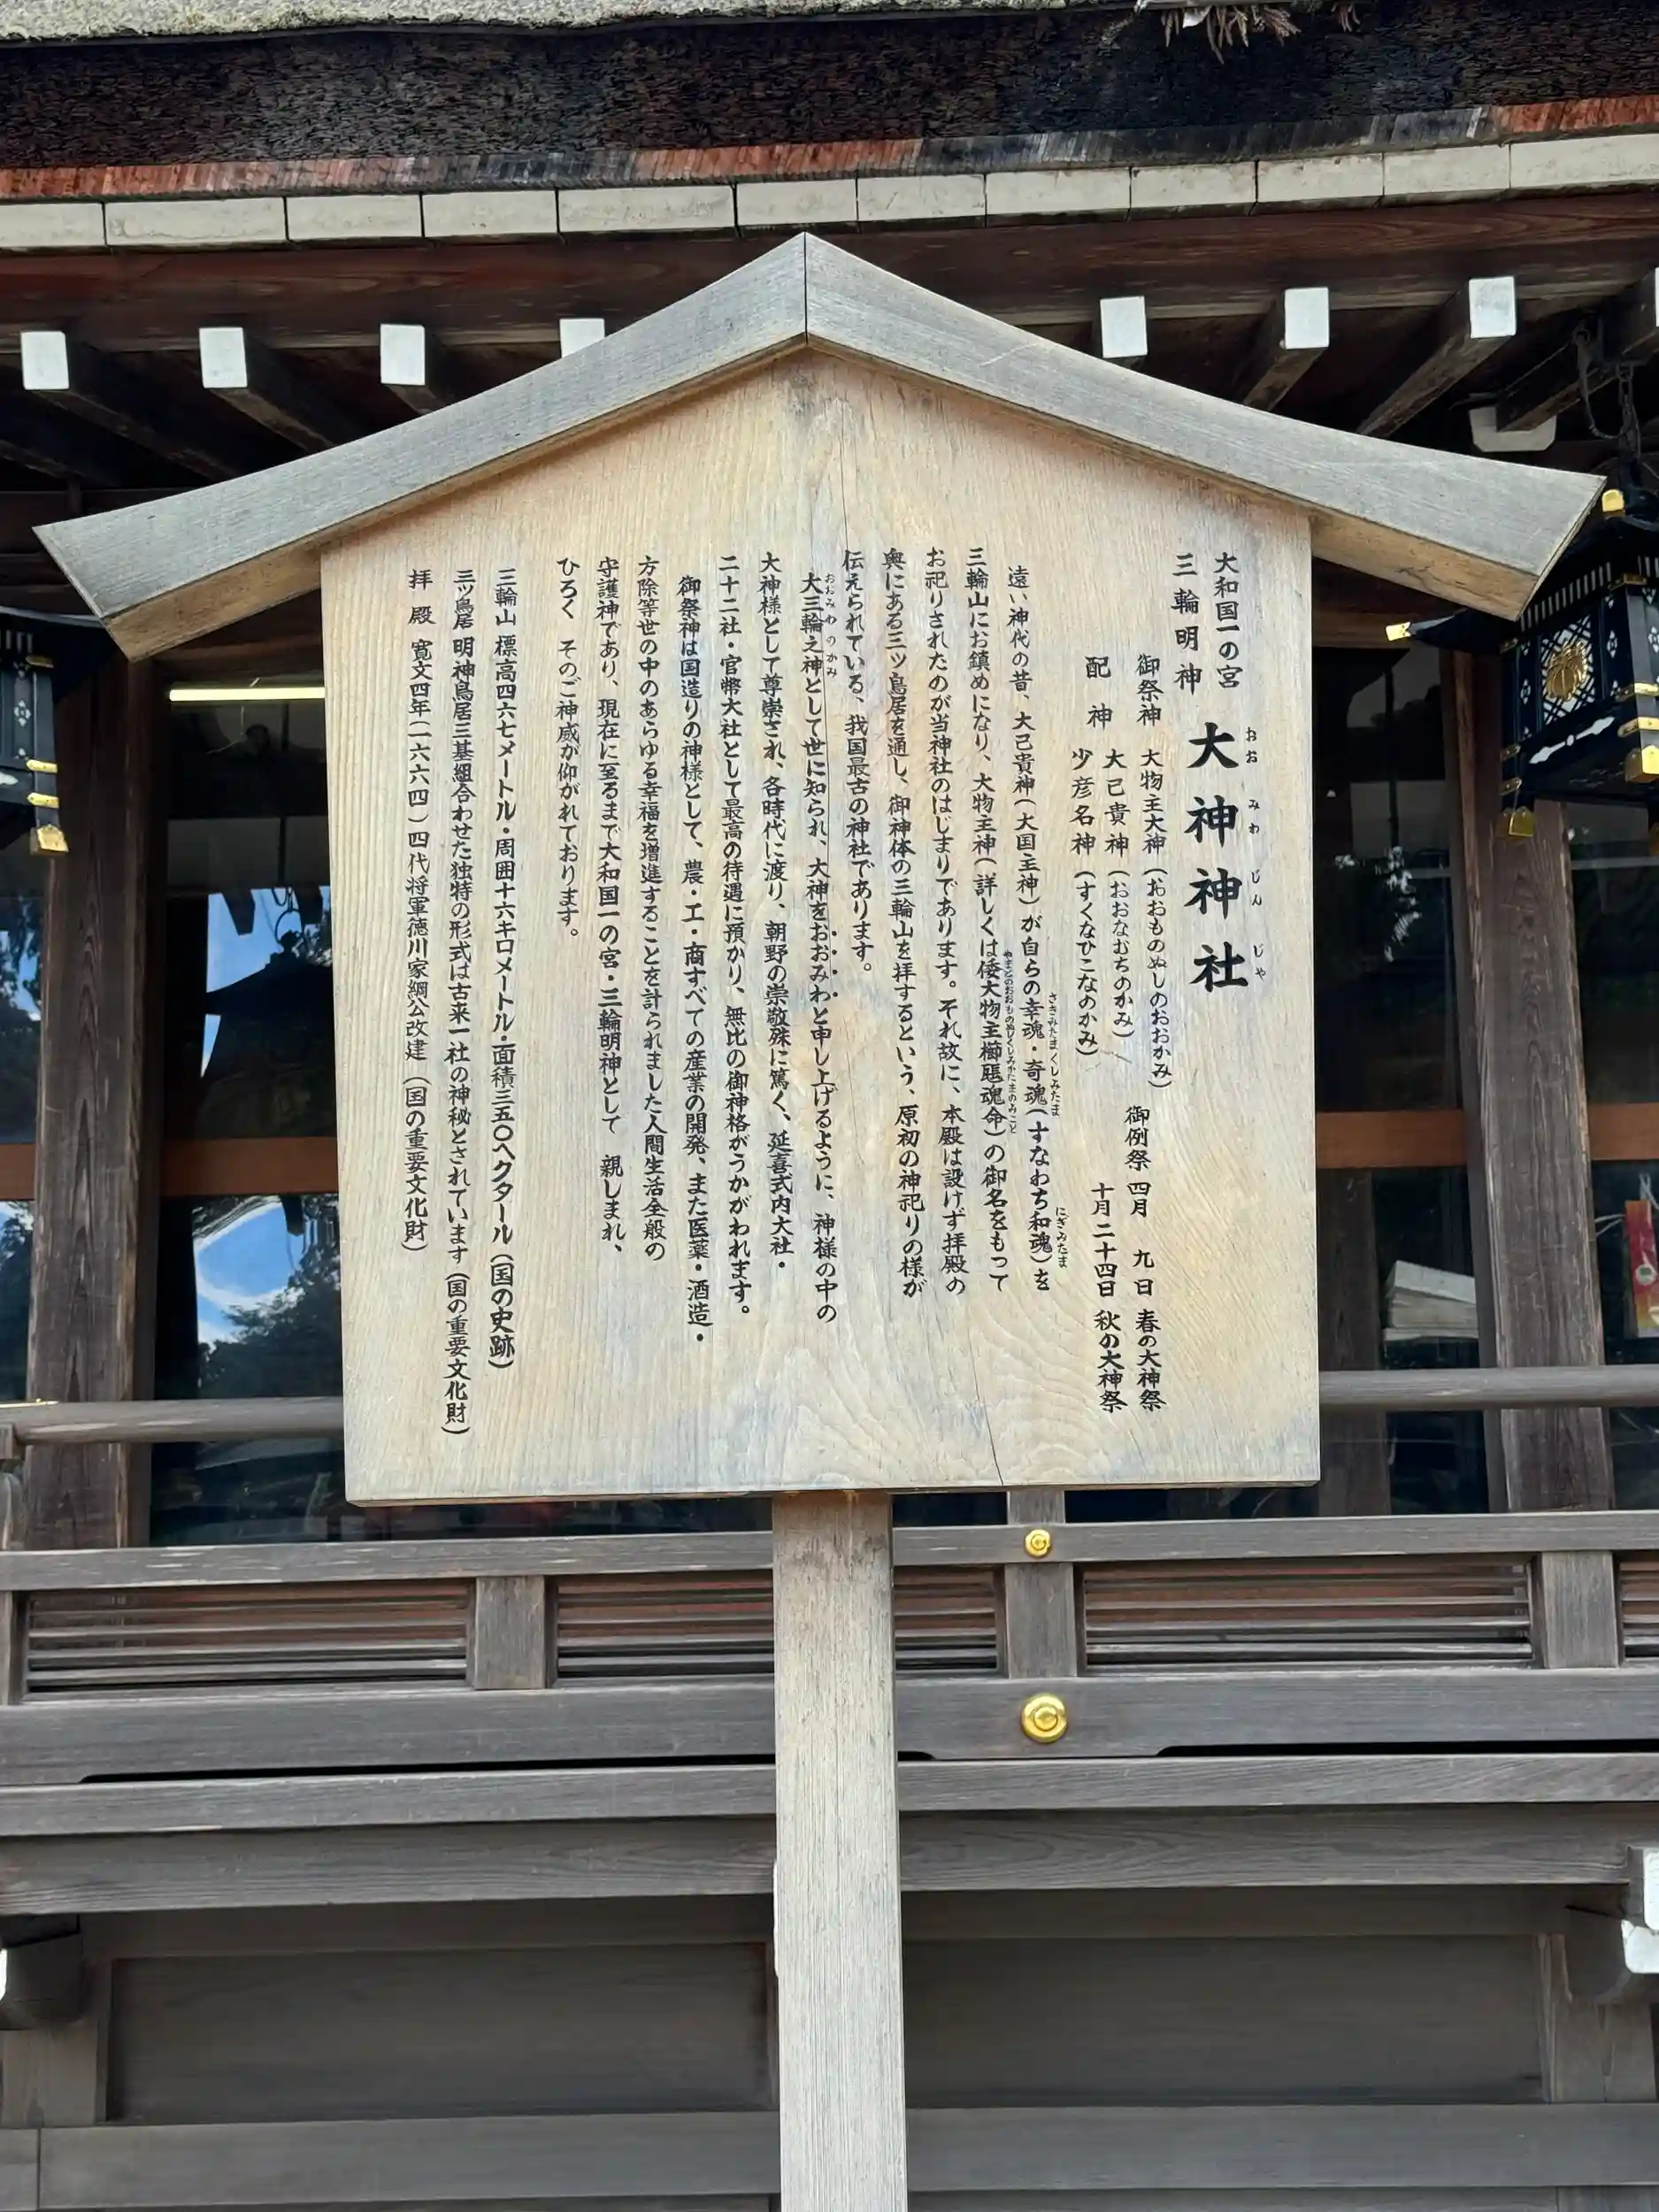 大和国一の宮
三輪明神
大神神社
おお みわ じん じゃ
御祭神 大物主大神(おおものぬしのおおかみ)
配神 大己貴神(おおなむちのかみ)
少彦名神(すくなひこなのかみ)
御例祭 四月 九日 春の大神祭
十月二十四日 秋の大神祭
遠い神代の昔、大己貴神(大国主神)が自らの幸魂・奇魂(すなわち和魂)を
さきみたま くしみたま にぎみたま
三輪山にお鎮めになり、大物主神(詳しくは倭大物主櫛𤭖魂命)の御名をもって
やまとのおおものぬしくしみかたまのみこと
お祀りされたのが当神社のはじまりであります。それ故に、本殿は設けず拝殿の
奥にある三ツ鳥居を通し、御神体の三輪山を拝するという、原初の神祀りの様が
伝えられている、我国最古の神社であります。
大三輪之神として世に知られ、大神をおおみわと申し上げるように、神様の中の
おおみわのかみ
大神様として尊崇され、各時代に渡り、朝野の崇敬殊に篤く、延喜式内大社・
二十二社・官幣大社として最高の待遇に預かり、無比の御神格がうかがわれます。
御祭神は国造りの神様として、農・工・商すべての産業の開発、また医薬・酒造・
方除等世の中のあらゆる幸福を増進することを計られました人間生活全般の
守護神であり、現在に至るまで大和国一の宮・三輪明神として 親しまれ、
ひろく そのご神威が仰がれております。
三輪山 標高四六七メートル・周囲十六キロメートル・面積三五〇ヘクタール(国の史跡)
三ツ鳥居 明神鳥居三基組合わせた独特の形式は古来一社の神秘とされています(国の重要文化財)
拝殿 寛文四年(一六六四)四代将軍徳川家綱公改建(国の重要文化財)